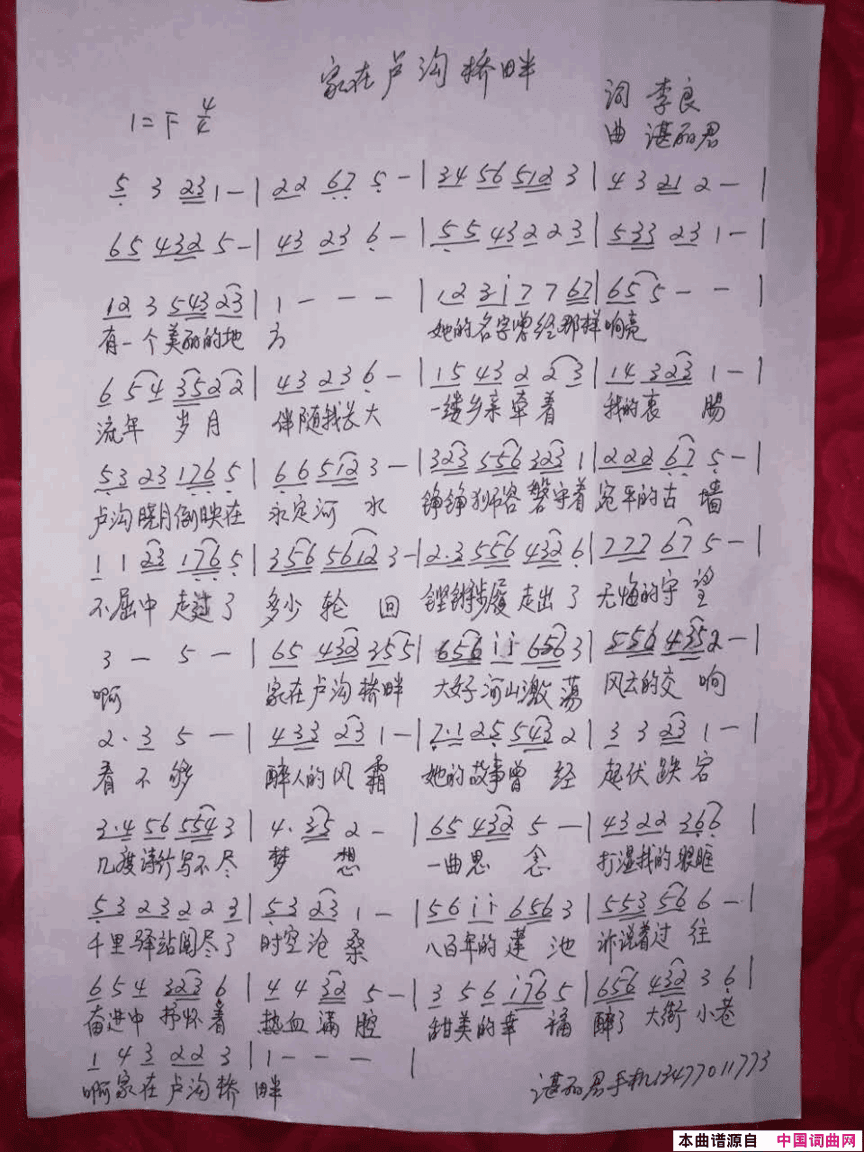 家在卢沟桥畔
1=F 4/4
词 李良
曲 谌丽君
5 3 23 1 - | 22 67 5 - | 34 56 512 3 | 4 3 21 2 - |
65 432 5 - | 43 23 6 - | 55 43 2 2 3 | 533 23 1 - |
12 3 543 23 | 1 - - - | 12 3i 7 7 67 | 65 5 - - |
有一个美丽的地 方 她的名字曾经那样响亮
6 54 352 2 | 43 23 6 - | 15 43 2 23 | 14 323 1 - |
流年 岁月 伴随我长大 一缕乡亲牵着 我的衷 肠
53 23 176 5 | 66 512 3 - | 323 556 323 1 | 222 67 5 - |
卢沟晓月倒映在 永定河 水 铮铮狮容磐守着 宛平的古 墙
1 1 23 176 5 | 356 5612 3 - | 2·3 556 432 6 | 777 67 5 - |
不屈中 走过了 多少 轮 回 铿锵步履 走出了 无悔的守 望
3 - 5 - | 65 432 355 | 656 ii 656 3 | 556 435 2 - |
啊 家在卢沟桥畔 大好河山激 荡 风云的交 响
2· 3 5 - | 433 23 1 - | 7·1 25 543 2 | 3 3 23 1 - |
看 不 够 醉人的风 霜 她的故事曾 经 起伏跌宕
3·4 56 554 3 | 4· 35 2 - | 65 432 5 - | 43 22 366 |
几度诗行写不尽 梦 想 一曲思 念 打湿我的眼眶
53 23 2 2 3 | 53 23 1 - | 56 ii 656 3 | 553 56 6 - |
千里驿站阅尽了 时空沧 桑 八百年的莲 池 诉说着过 往
6 5 4 323 6 | 4 4 32 5 - | 3 5 6 i76 5 | 656 432 3 6 |
奋进中 抒怀着 热血满 腔 甜美的幸 福 醉了 大街 小巷
1 4 3 22 3 | 1 - - - |
啊家在卢沟桥 畔
谌丽君手机13477011773
本曲谱源自 中国词曲网